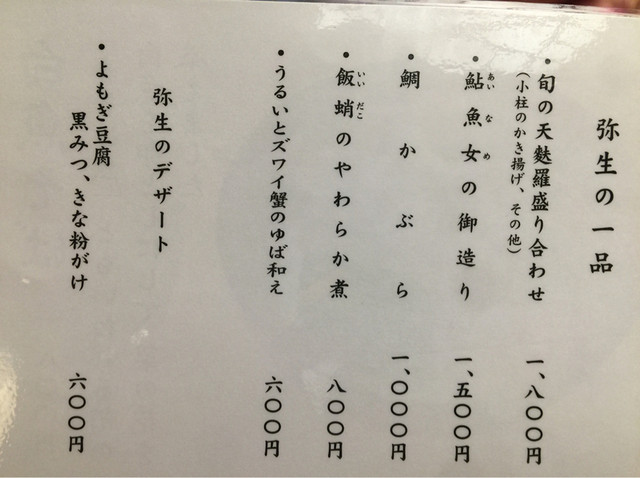 弥生の一品
・旬の天麩羅盛り合わせ 一、八〇〇円
（小柱のかき揚げ、その他）
・鮎魚女の御造り 一、五〇〇円
あいなめ
・鯛かぶら 一、〇〇〇円
・飯蛸のやわらか煮 八〇〇円
いいだこ
・うるいとズワイ蟹のゆば和え 六〇〇円
弥生のデザート
・よもぎ豆腐
黒みつ、きな粉がけ 六〇〇円